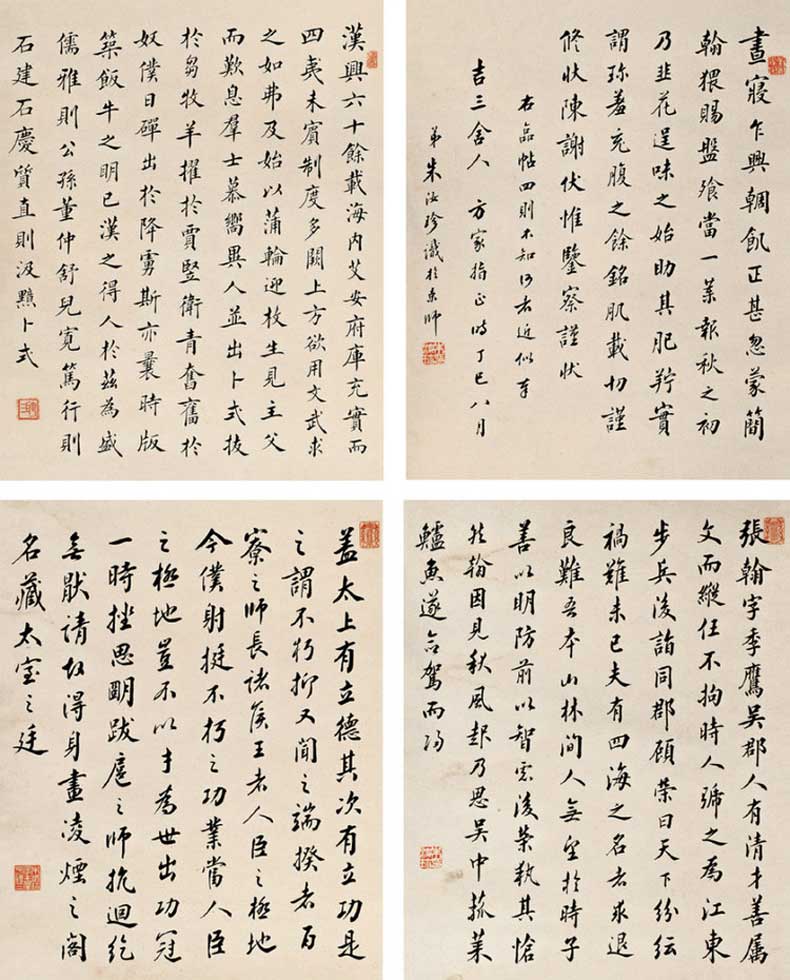 晝寢乍興輖飢正甚忽蒙簡
翰猥賜盤飧當一葉報秋之初
乃韭花逞味之始助其肥羜實
謂珍羞充腹之餘銘肌載切謹
修狀陳謝伏惟鑒察謹狀
右臨帖四則不知何者近似幸
吉三舍人 方家指正時丁巳八月
弟朱汝珍識於京師
漢興六十餘載海內艾安府庫充實而
四夷未賓制度多闕上方欲用文武求
之如弗及始以蒲輪迎枚生見主父
而歎息羣士慕嚮異人並出卜式拔
於芻牧羊擢於賈豎衛青奮舊於
奴僕日磾出於降虜斯亦曩時版
築飯牛之明已漢之得人於茲為盛
儒雅則公孫董仲舒兒寬篤行則
石建石慶質直則汲黯卜式
張翰字季鷹吳郡人有清才善屬
文而縱任不拘時人號之為江東
步兵後謂同郡顧榮曰天下紛紜
禍難未已夫有四海之名者求退
良難吾本山林間人無望於時子
善以明防前以智慮後榮執其愴
然翰因見秋風起乃思吳中菰菜
鱸魚遂命駕而歸
蓋太上有立德其次有立功是
之謂不朽抑又聞之端揆者百
寮之師長諸侯王者人臣之極地
今僕射挺不朽之功業當人臣
之極地豈不以才為世出功冠
一時挫思明跋扈之師抗迴紇
無厭請故得身畫凌煙之閣
名藏太室之廷